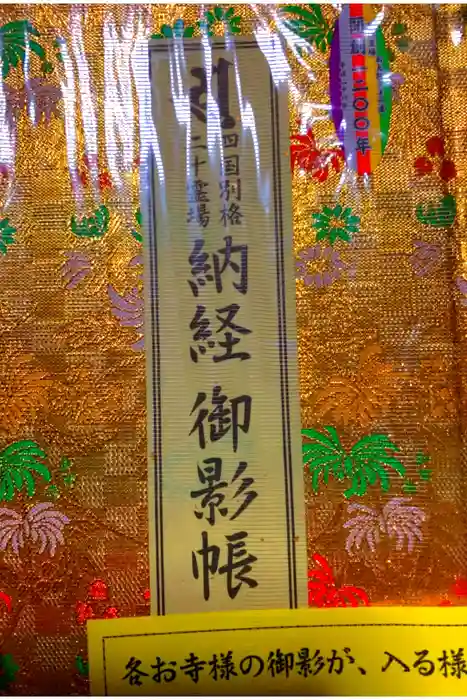 開創一二〇〇年
四国別格
二十霊場
納経 御影帳
各お寺様の御影が、入る様